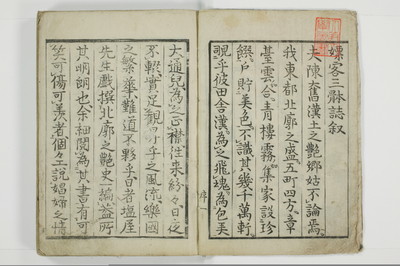 嫖客三躰誌叙
夫陳奮漢土之艶郷姑不論焉
我東都北廓之盛五町四方章
臺雲合青樓霧集家設珍
饌戸貯美色不識其幾千萬軒
覗乎彼田舎漢為之飛魂為包美
大通児為之正襟往来紛々日夜
不輟實足觀乎之風流樂國
之繁華難道不夥乎者塩屋
先生戯撰北廓之艶史一編益所
其明朗也余細閲為其書有可
笑可傷可羨者個々工説娼婦之情
序一